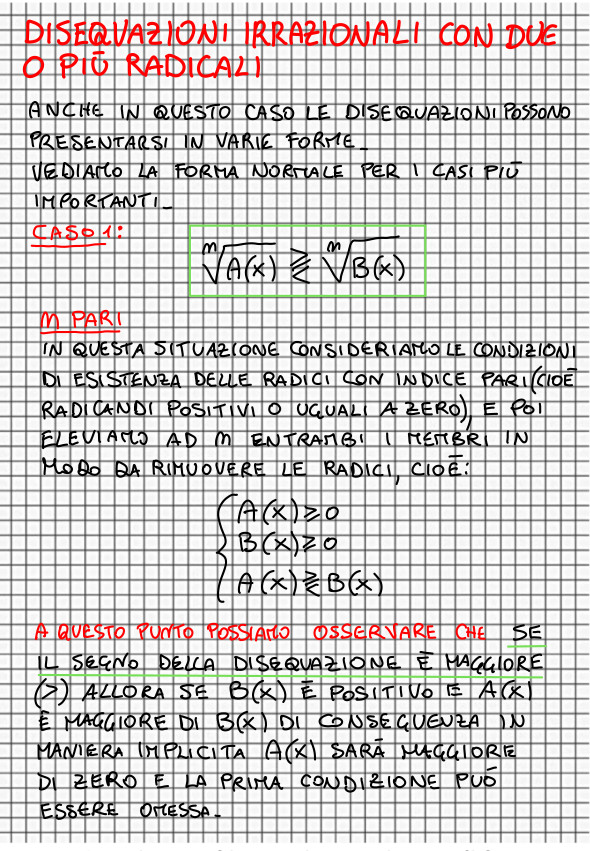 DISEQUAZIONI IRRAZIONALI CON DUE
O PIÙ RADICALI
ANCHE IN QUESTO CASO LE DISEQUAZIONI POSSONO
PRESENTARSI IN VARIE FORME_
VEDIAMO LA FORMA NORMALE PER I CASI PIÙ
IMPORTANTI_
CASO 1:
ᵐ√A(x) ⋛ ᵐ√B(x)
M PARI
IN QUESTA SITUAZIONE CONSIDERIAMO LE CONDIZIONI
DI ESISTENZA DELLE RADICI CON INDICE PARI (CIOÈ
RADICANDI POSITIVI O UGUALI A ZERO), E POI
ELEVIAMO AD M ENTRAMBI I MEMBRI IN
MODO DA RIMUOVERE LE RADICI, CIOÈ:
A(x) ⩾ 0
B(x) ⩾ 0
A(x) ⋛ B(x)
A QUESTO PUNTO POSSIAMO OSSERVARE CHE SE
IL SEGNO DELLA DISEQUAZIONE È MAGGIORE
(>) ALLORA SE B(x) È POSITIVO E A(x)
È MAGGIORE DI B(x) DI CONSEGUENZA IN
MANIERA IMPLICITA A(x) SARÀ MAGGIORE
DI ZERO E LA PRIMA CONDIZIONE PUÒ
ESSERE OMESSA_